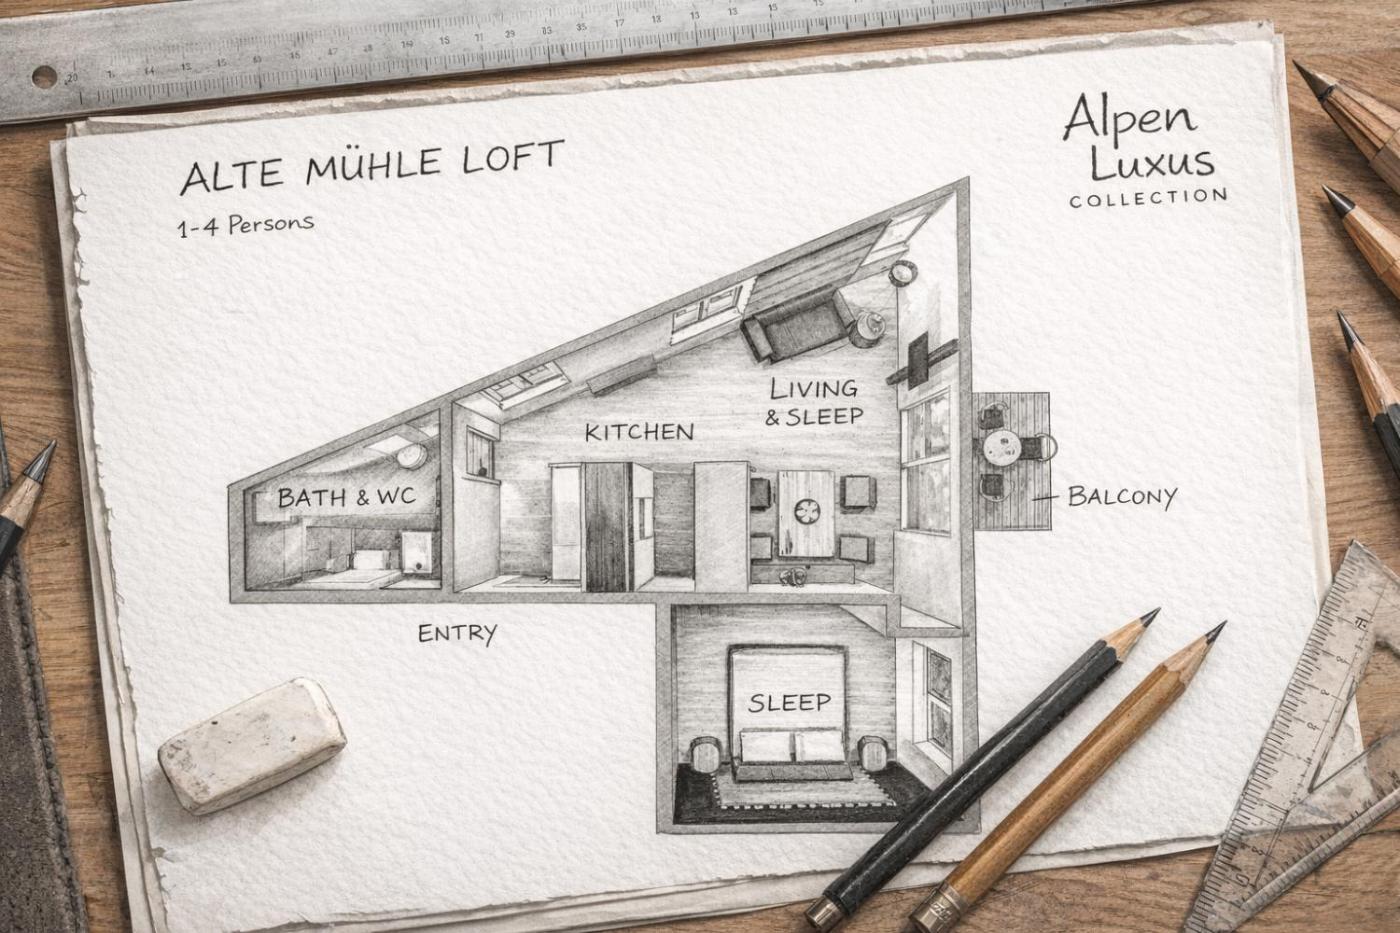 ALTE MÜHLE LOFT
1-4 Persons
Alpen
Luxus
COLLECTION
LIVING
& SLEEP
KITCHEN
BATH & WC
BALCONY
ENTRY
SLEEP